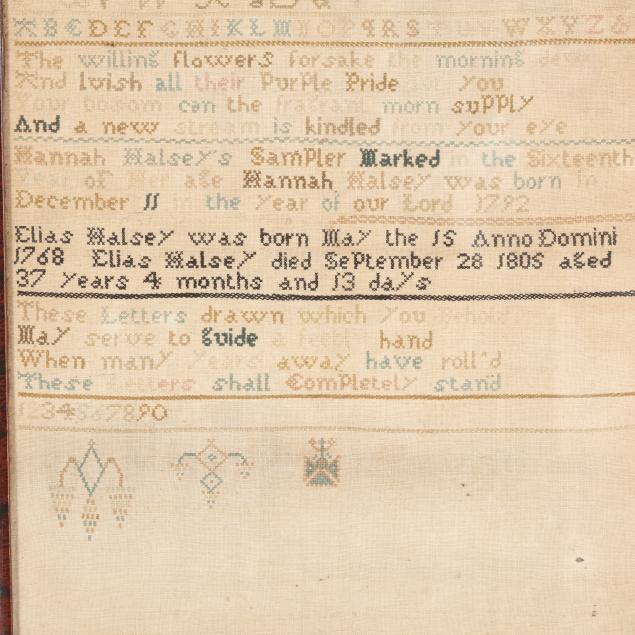 A B C D E F G H I K L M N O P Q R S T U V W X Y Z &
The willing flowers forsake the morning dew
And lwish all their PurPle Pride for you
Your bosom can the fragrant morn suPPly
And a new stream is kindled from your eye
Hannah Halsey's SamPler Marked in the Sixteenth
Year of Her age Hannah Halsey was born in
December 11 in the year of our Lord 1792
Elias Halsey was born May the 15 Anno Domini
1768 Elias Halsey died SePtember 28 1805 aged
37 years 4 months and 13 days
These Letters drawn which you behold
May serve to guide a feeble hand
When many years away have roll'd
These Letters shall ComPletely stand
1234567890